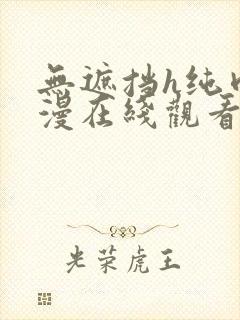 無遮挡h纯
漫在綫觀看
光荣虎王